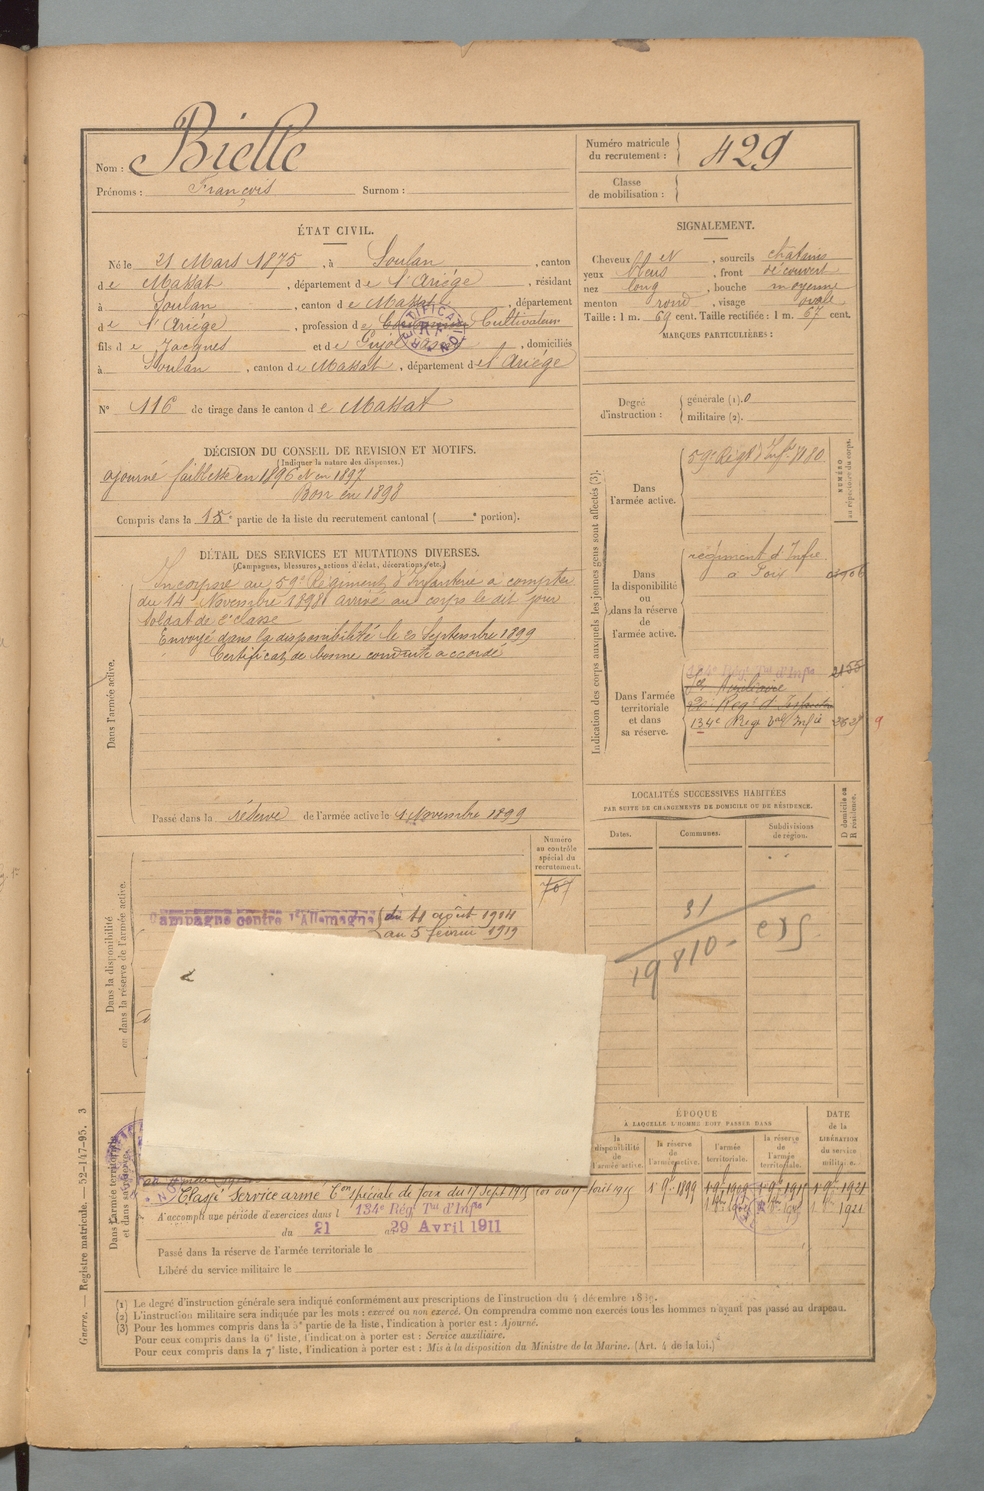 Nom : Bielle
Prénoms : François Surnom :
Numéro matricule du recrutement : 429
Classe de mobilisation :
ÉTAT CIVIL.
Né le 21 Mars 1875, à Soulan, canton
de Massat, département de l'Ariège, résidant
à Soulan, canton de Massat, département
de l'Ariège, profession de Cultivateur
fils de Jacques et de Pujol, domiciliés
à Soulan, canton de Massat, département de l'Ariège
N° 116 de tirage dans le canton de Massat
SIGNALEMENT.
Cheveux et, sourcils chatains
yeux bleus, front découvert
nez long, bouche moyenne
menton rond, visage ovale
Taille : 1 m. 69 cent. Taille rectifiée : 1 m. 67 cent.
MARQUES PARTICULIÈRES :
Degré d'instruction : générale (1). 0
militaire (2).
DÉCISION DU CONSEIL DE REVISION ET MOTIFS.
(Indiquer la nature des dispenses.)
ajourné faiblesse en 1896 et en 1897
Bon en 1898
Compris dans la 1re partie de la liste du recrutement cantonal ( e portion).
DÉTAIL DES SERVICES ET MUTATIONS DIVERSES.
(Campagnes, blessures, actions d'éclat, décorations, etc.)
Dans l'armée active.
Incorporé au 59e Régiment d'Infanterie à compter
du 14 Novembre 1898 arrivé au corps le dit jour
soldat de 2e classe
Envoyé dans la disponibilité le 20 Septembre 1899
Certificat de bonne conduite accordé
Passé dans la réserve de l'armée active le 1 Novembre 1899
Indication des corps auxquels les jeunes gens sont affectés (3).
NUMÉRO au répertoire du corps.
Dans l'armée active.
59e Régt d'Infie 7180
Dans la disponibilité ou dans la réserve de l'armée active.
régiment d'Infie
à Foix
Dans l'armée territoriale et dans sa réserve.
134e Rég. Tal d'Infie 2155
134e Régt Tal Infie
LOCALITÉS SUCCESSIVES HABITÉES
PAR SUITE DE CHANGEMENTS DE DOMICILE OU DE RÉSIDENCE.
Dates. Communes. Subdivisions de région. D domicile ou R résidence.
Dans la disponibilité ou dans la réserve de l'armée active.
Numéro au contrôle spécial du recrutement.
707
Campagne contre l'Allemagne du 11 août 1914
au 5 février 1919
31
19810
ÉPOQUE
À LAQUELLE L'HOMME DOIT PASSER DANS
la disponibilité de l'armée active.
la réserve de l'armée active.
l'armée territoriale.
la réserve de l'armée territoriale.
DATE de la LIBÉRATION du service militaire.
1er 9bre 1899
1921
Dans l'armée territoriale et dans sa réserve.
Classé Service armé Con spéciale de Foix du 17 Sept 1915
A accompli une période d'exercices dans l 134e Rég Tal d'Infie
du 21 au 29 Avril 1911
Passé dans la réserve de l'armée territoriale le
Libéré du service militaire le
(1) Le degré d'instruction générale sera indiqué conformément aux prescriptions de l'instruction du 4 décembre 1889.
(2) L'instruction militaire sera indiquée par les mots : exercé ou non exercé. On comprendra comme non exercés tous les hommes n'ayant pas passé au drapeau.
(3) Pour les hommes compris dans la 5e partie de la liste, l'indication à porter est : Ajourné.
Pour ceux compris dans la 6e liste, l'indication à porter est : Service auxiliaire.
Pour ceux compris dans la 7e liste, l'indication à porter est : Mis à la disposition du Ministre de la Marine. (Art. 4 de la loi.)
Guerre. — Registre matricule. — 52-147-95. 3